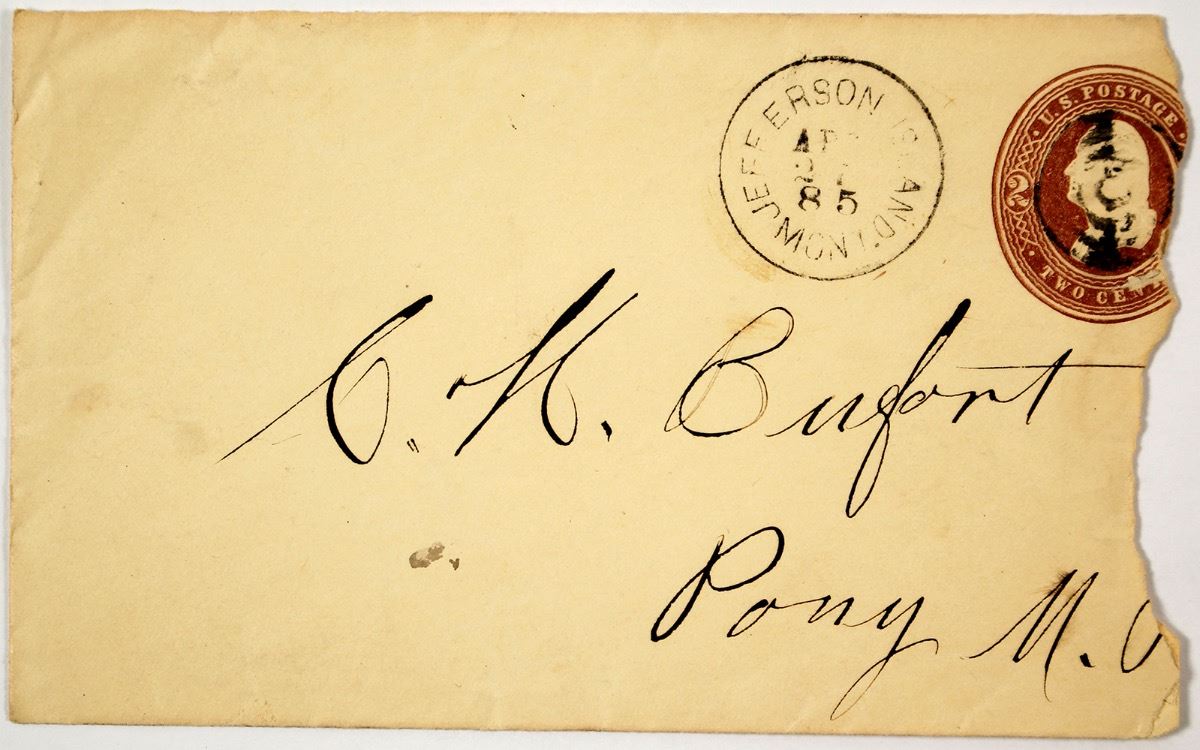 JEFFERSON ISLAND, MONT.
85
U.S. POSTAGE
2
TWO CENT
C. H. Bufort
Pony M.